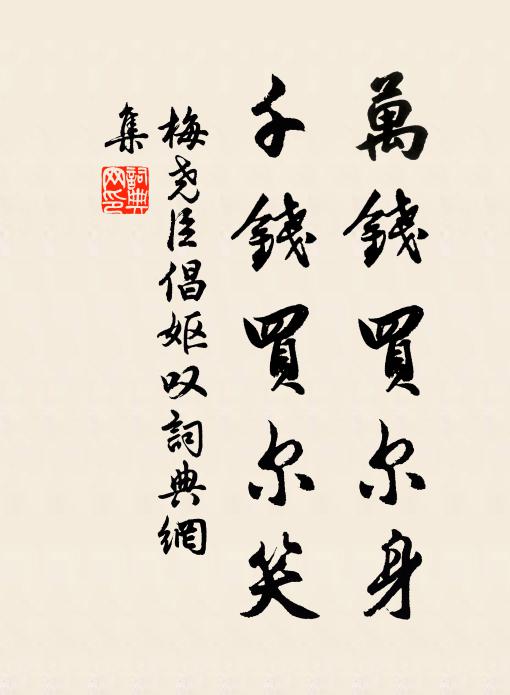 萬錢買尔身
千錢買尔笑
梅尧臣倡妪叹詞典網
集
詞典網印